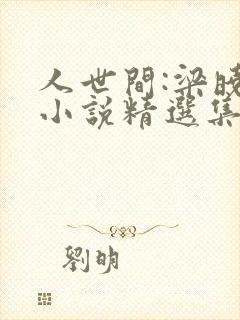 人世間:梁曉
小說精選集
劉明